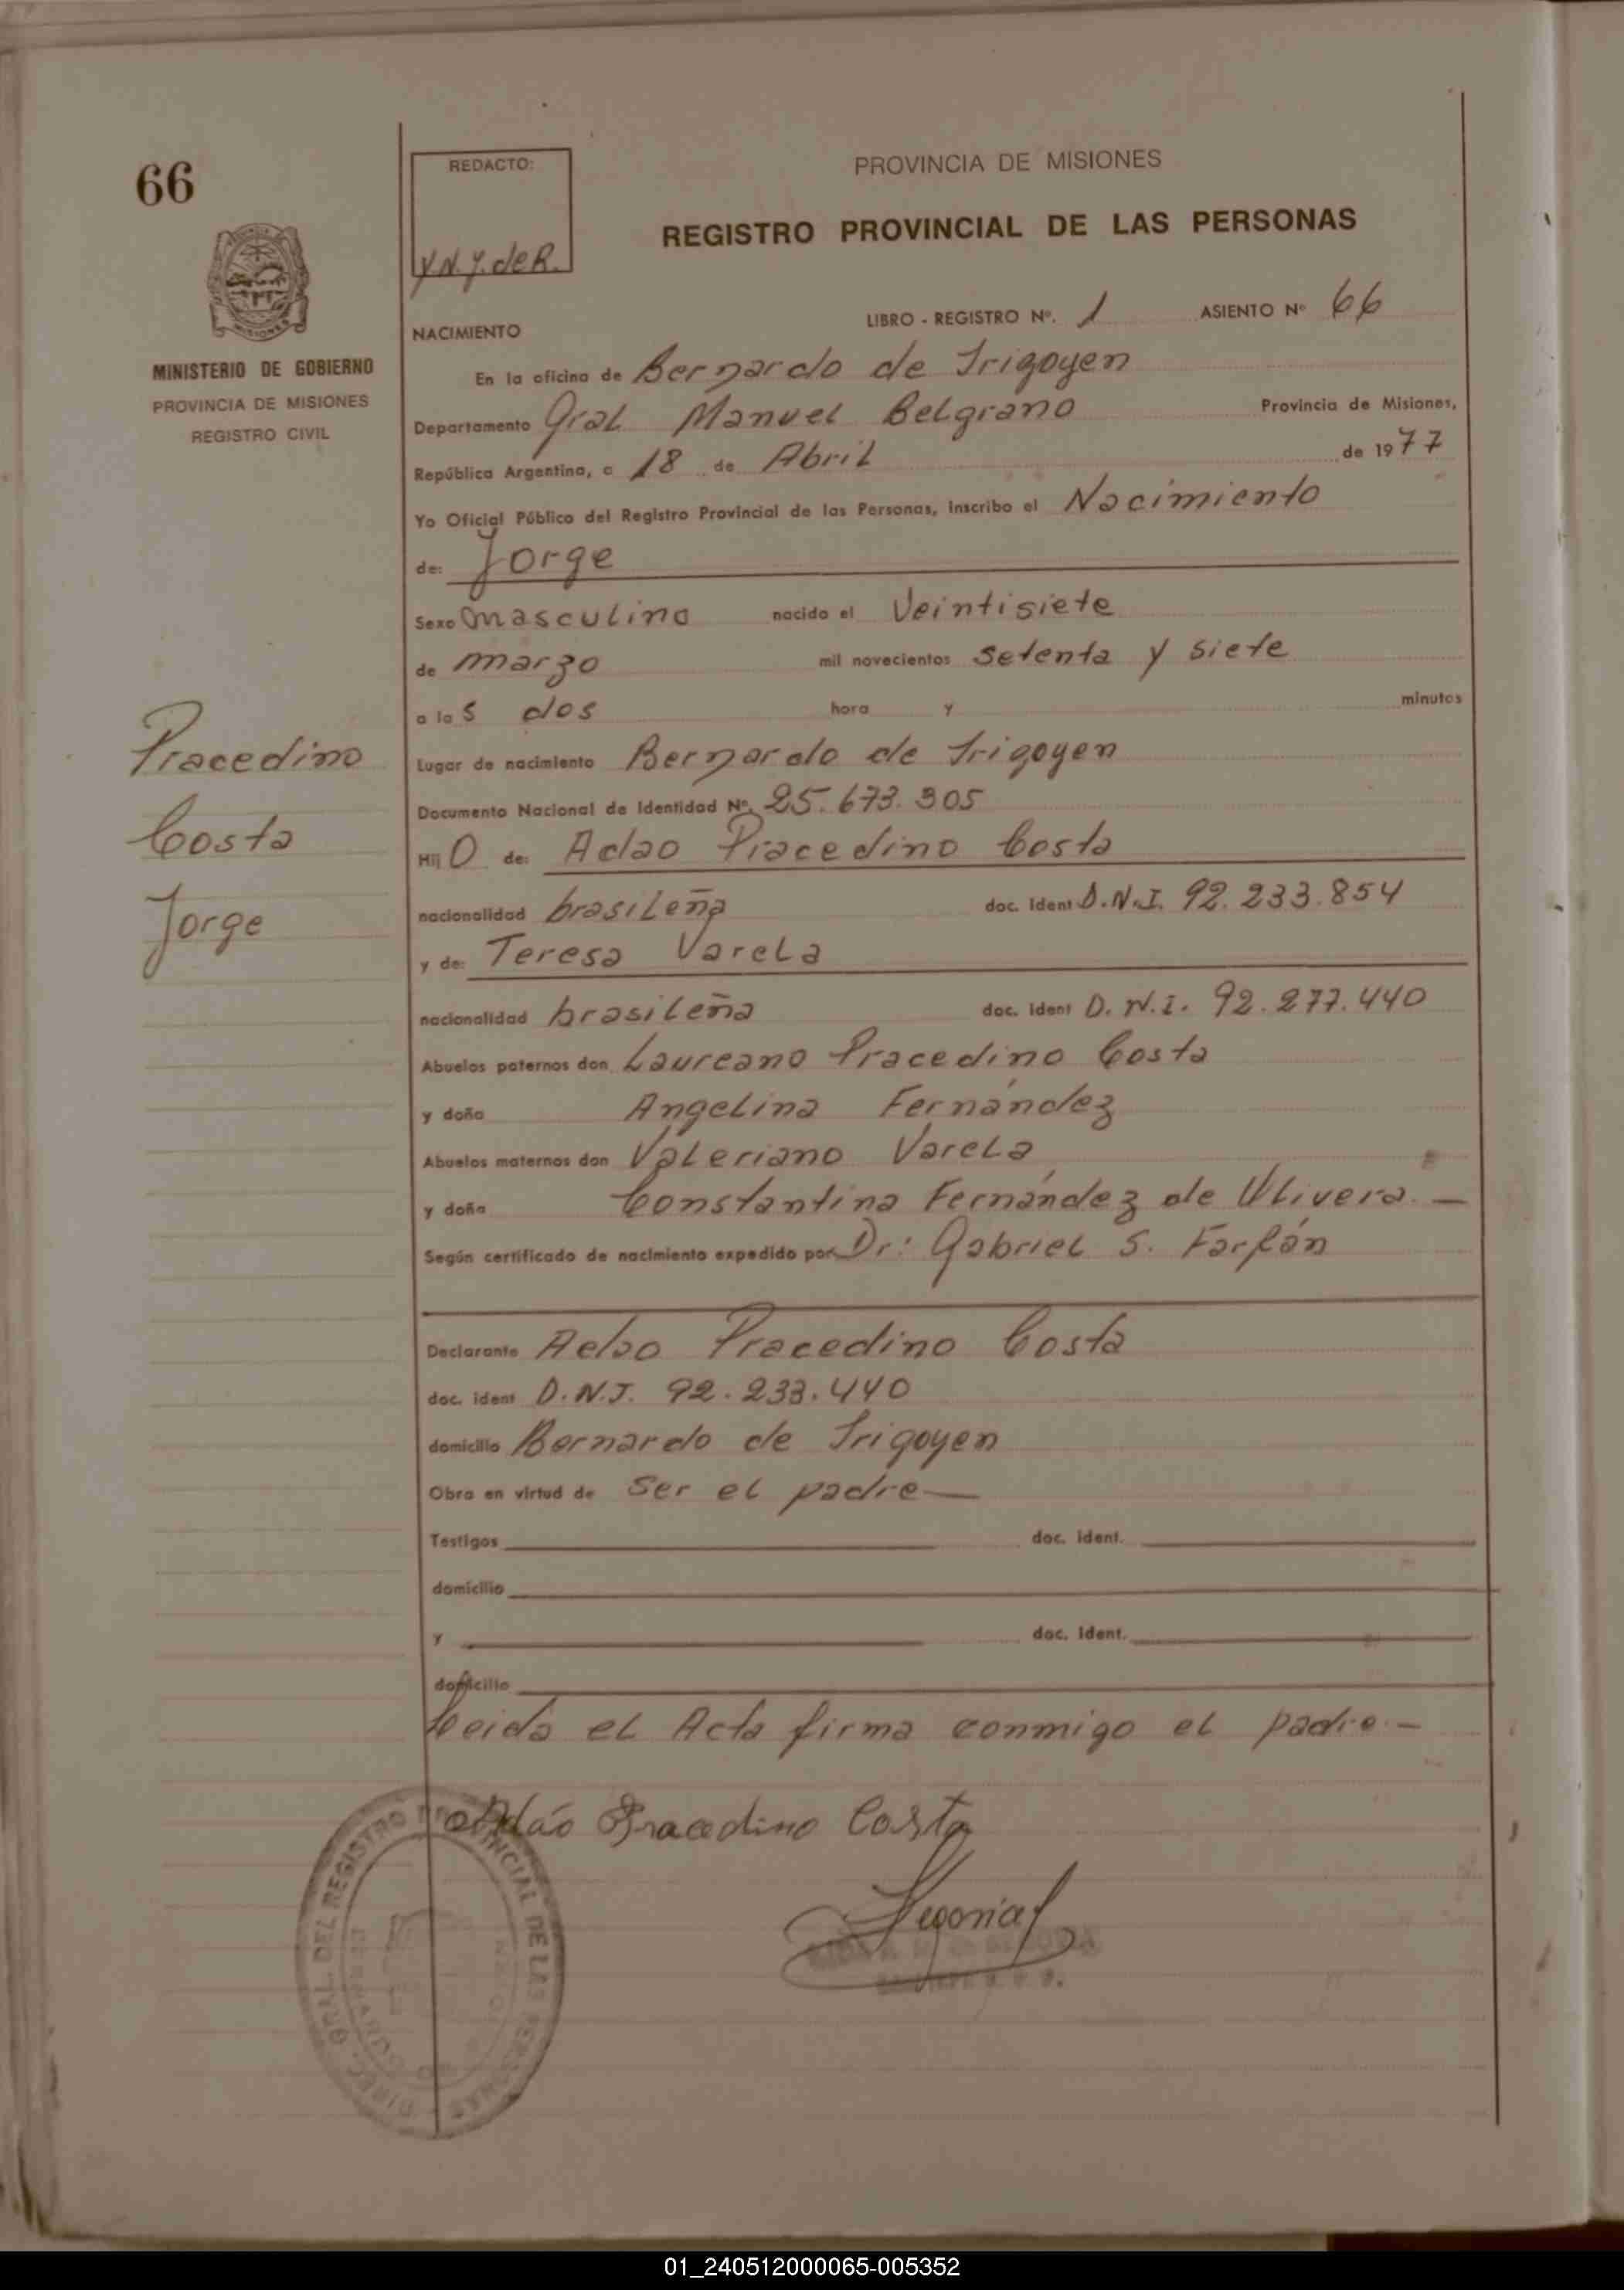 66
REDACTO:
Y.N.Y. de R.
MINISTERIO DE GOBIERNO
PROVINCIA DE MISIONES
REGISTRO CIVIL
PROVINCIA DE MISIONES
REGISTRO PROVINCIAL DE LAS PERSONAS
NACIMIENTO LIBRO - REGISTRO Nº. 1 ASIENTO Nº 66
En la oficina de Bernardo de Irigoyen
Departamento Gral Manuel Belgrano Provincia de Misiones,
República Argentina, a 18 de Abril de 1977
Yo Oficial Público del Registro Provincial de las Personas, inscribo el Nacimiento
de: Jorge
Sexo masculino nacido el Veintisiete
de marzo mil novecientos setenta y siete
a las dos hora y minutos
Lugar de nacimiento Bernardo de Irigoyen
Documento Nacional de Identidad Nº. 25.673.305
Hijo de: Adao Pracedino Costa
nacionalidad brasileña doc. ident D.N.I. 92.233.854
y de: Teresa Varela
nacionalidad brasileña doc. ident D.N.I. 92.277.440
Abuelos paternos don Laureano Pracedino Costa
y doña Angelina Fernández
Abuelos maternos don Valeriano Varela
y doña Constantina Fernández de Ulivera.—
Según certificado de nacimiento expedido por Dr: Gabriel S. Farfán
Declarante Adao Pracedino Costa
doc. ident D.N.I. 92.233.440
domicilio Bernardo de Irigoyen
Obra en virtud de Ser el padre—
Testigos doc. ident.
domicilio
y doc. ident.
domicilio
Leida el Acta firma conmigo el padre.—
Adão Pracedino Costa
Segovia
Pracedino
Costa
Jorge
DIREC. GRAL. DEL REGISTRO PROVINCIAL DE LAS PERSONAS
BERNARDO DE
01_240512000065-005352